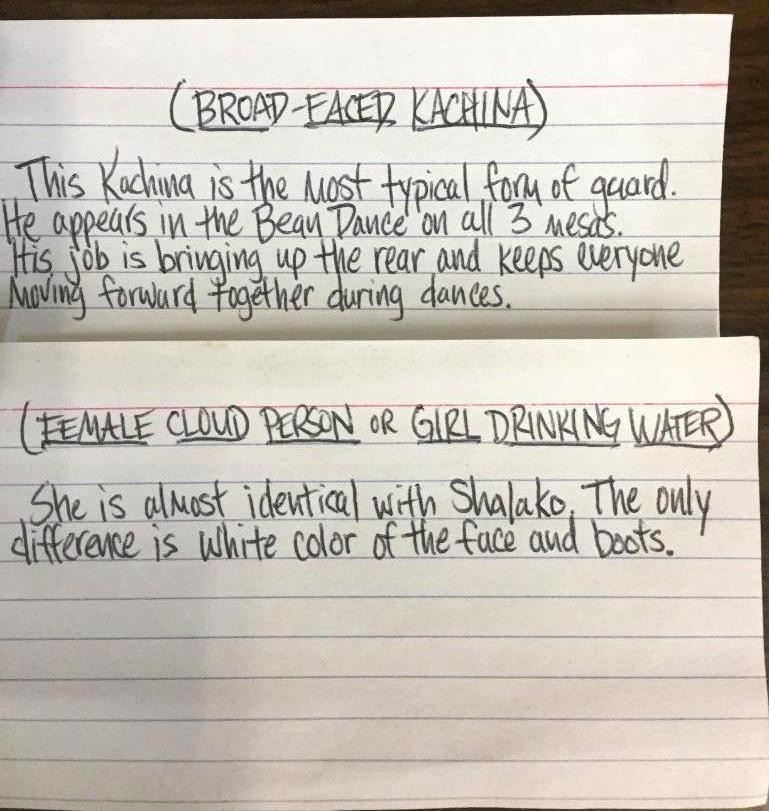 (BROAD-FACED KACHINA)
This Kachina is the most typical form of guard.
He appears in the Bean Dance on all 3 mesas.
His job is bringing up the rear and keeps everyone
moving forward together during dances.
(FEMALE CLOUD PERSON OR GIRL DRINKING WATER)
She is almost identical with Shalako. The only
difference is white color of the face and boots.